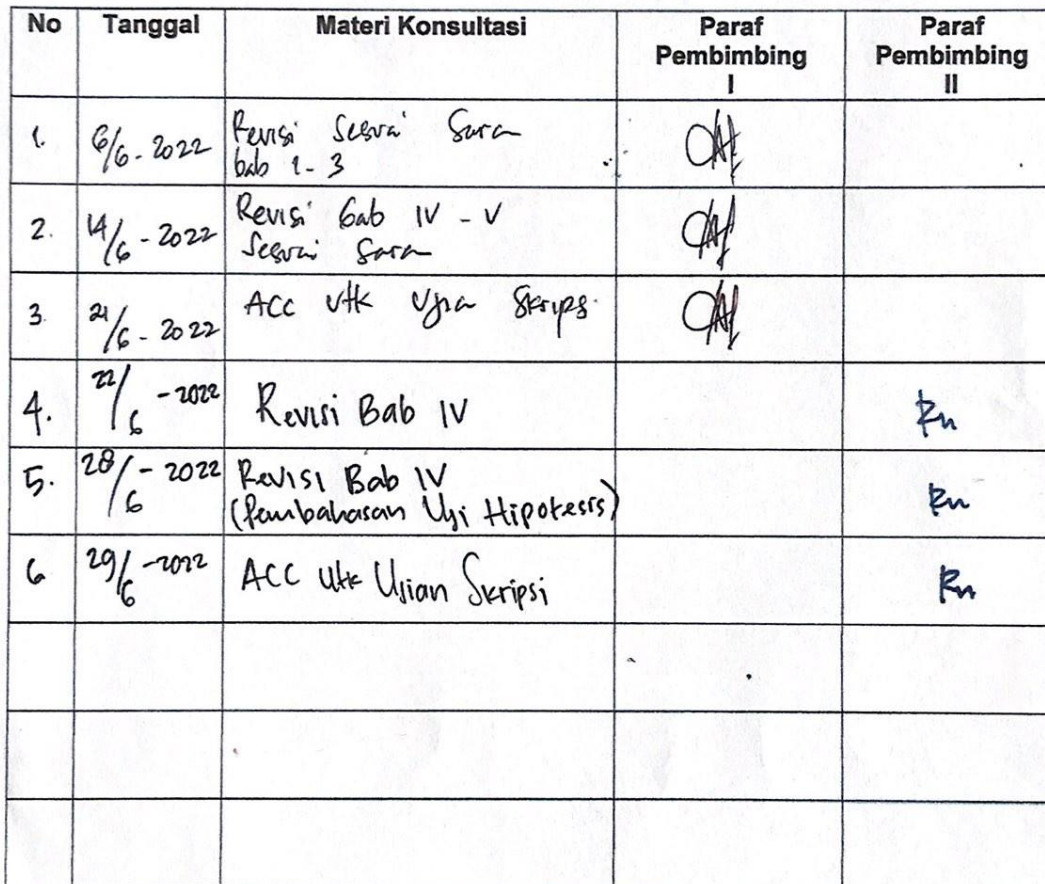 No Tanggal Materi Konsultasi Paraf Pembimbing I Paraf Pembimbing II
1. 6/6 - 2022 Revisi Sesuai Saran
bab 1 - 3
2. 14/6 - 2022 Revisi bab IV - V
Sesuai Saran
3. 21/6 - 2022 ACC Utk Ujian Skripsi
4. 22/6 - 2022 Revisi Bab IV
5. 28/6 - 2022 Revisi Bab IV
(Pembahasan Uji Hipotesis)
6 29/6 - 2022 ACC Utk Ujian Skripsi